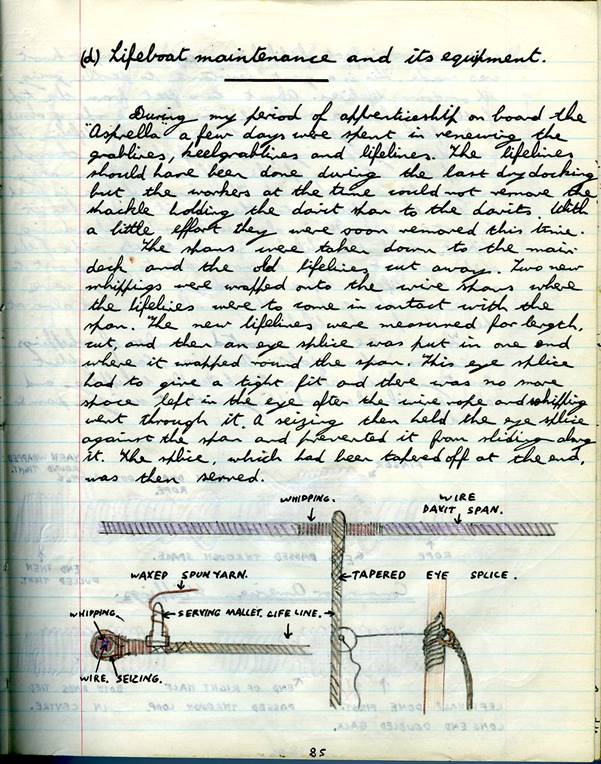 (d) Lifeboat maintenance and its equipment.
During my period of apprenticeship on board the
"Asprella" a few days were spent in renewing the
grablines, keelgrablines and lifelines. The lifelines
should have been done during the last drydocking
but the workers at the time could not remove the
shackle holding the davit span to the davits. With
a little effort they were soon removed this time.
The spans were taken down to the main
deck and the old lifelines cut away. Two new
whippings were wrapped onto the wire spans where
the lifelines were to come in contact with the
span. The new lifelines were measured for length,
cut, and then an eye splice was put in one end
where it wrapped round the span. This eye splice
had to give a tight fit and there was no more
space left in the eye after the wire rope and whipping
went through it. A seizing then held the eye splice
against the span and prevented it from sliding along
it. The splice, which had been tapered off at the end,
was then served.
WHIPPING.
WIRE
DAVIT SPAN.
WAXED SPUNYARN.
TAPERED EYE SPLICE.
WHIPPING.
SERVING MALLET. LIFE LINE.
WIRE. SEIZING.
85